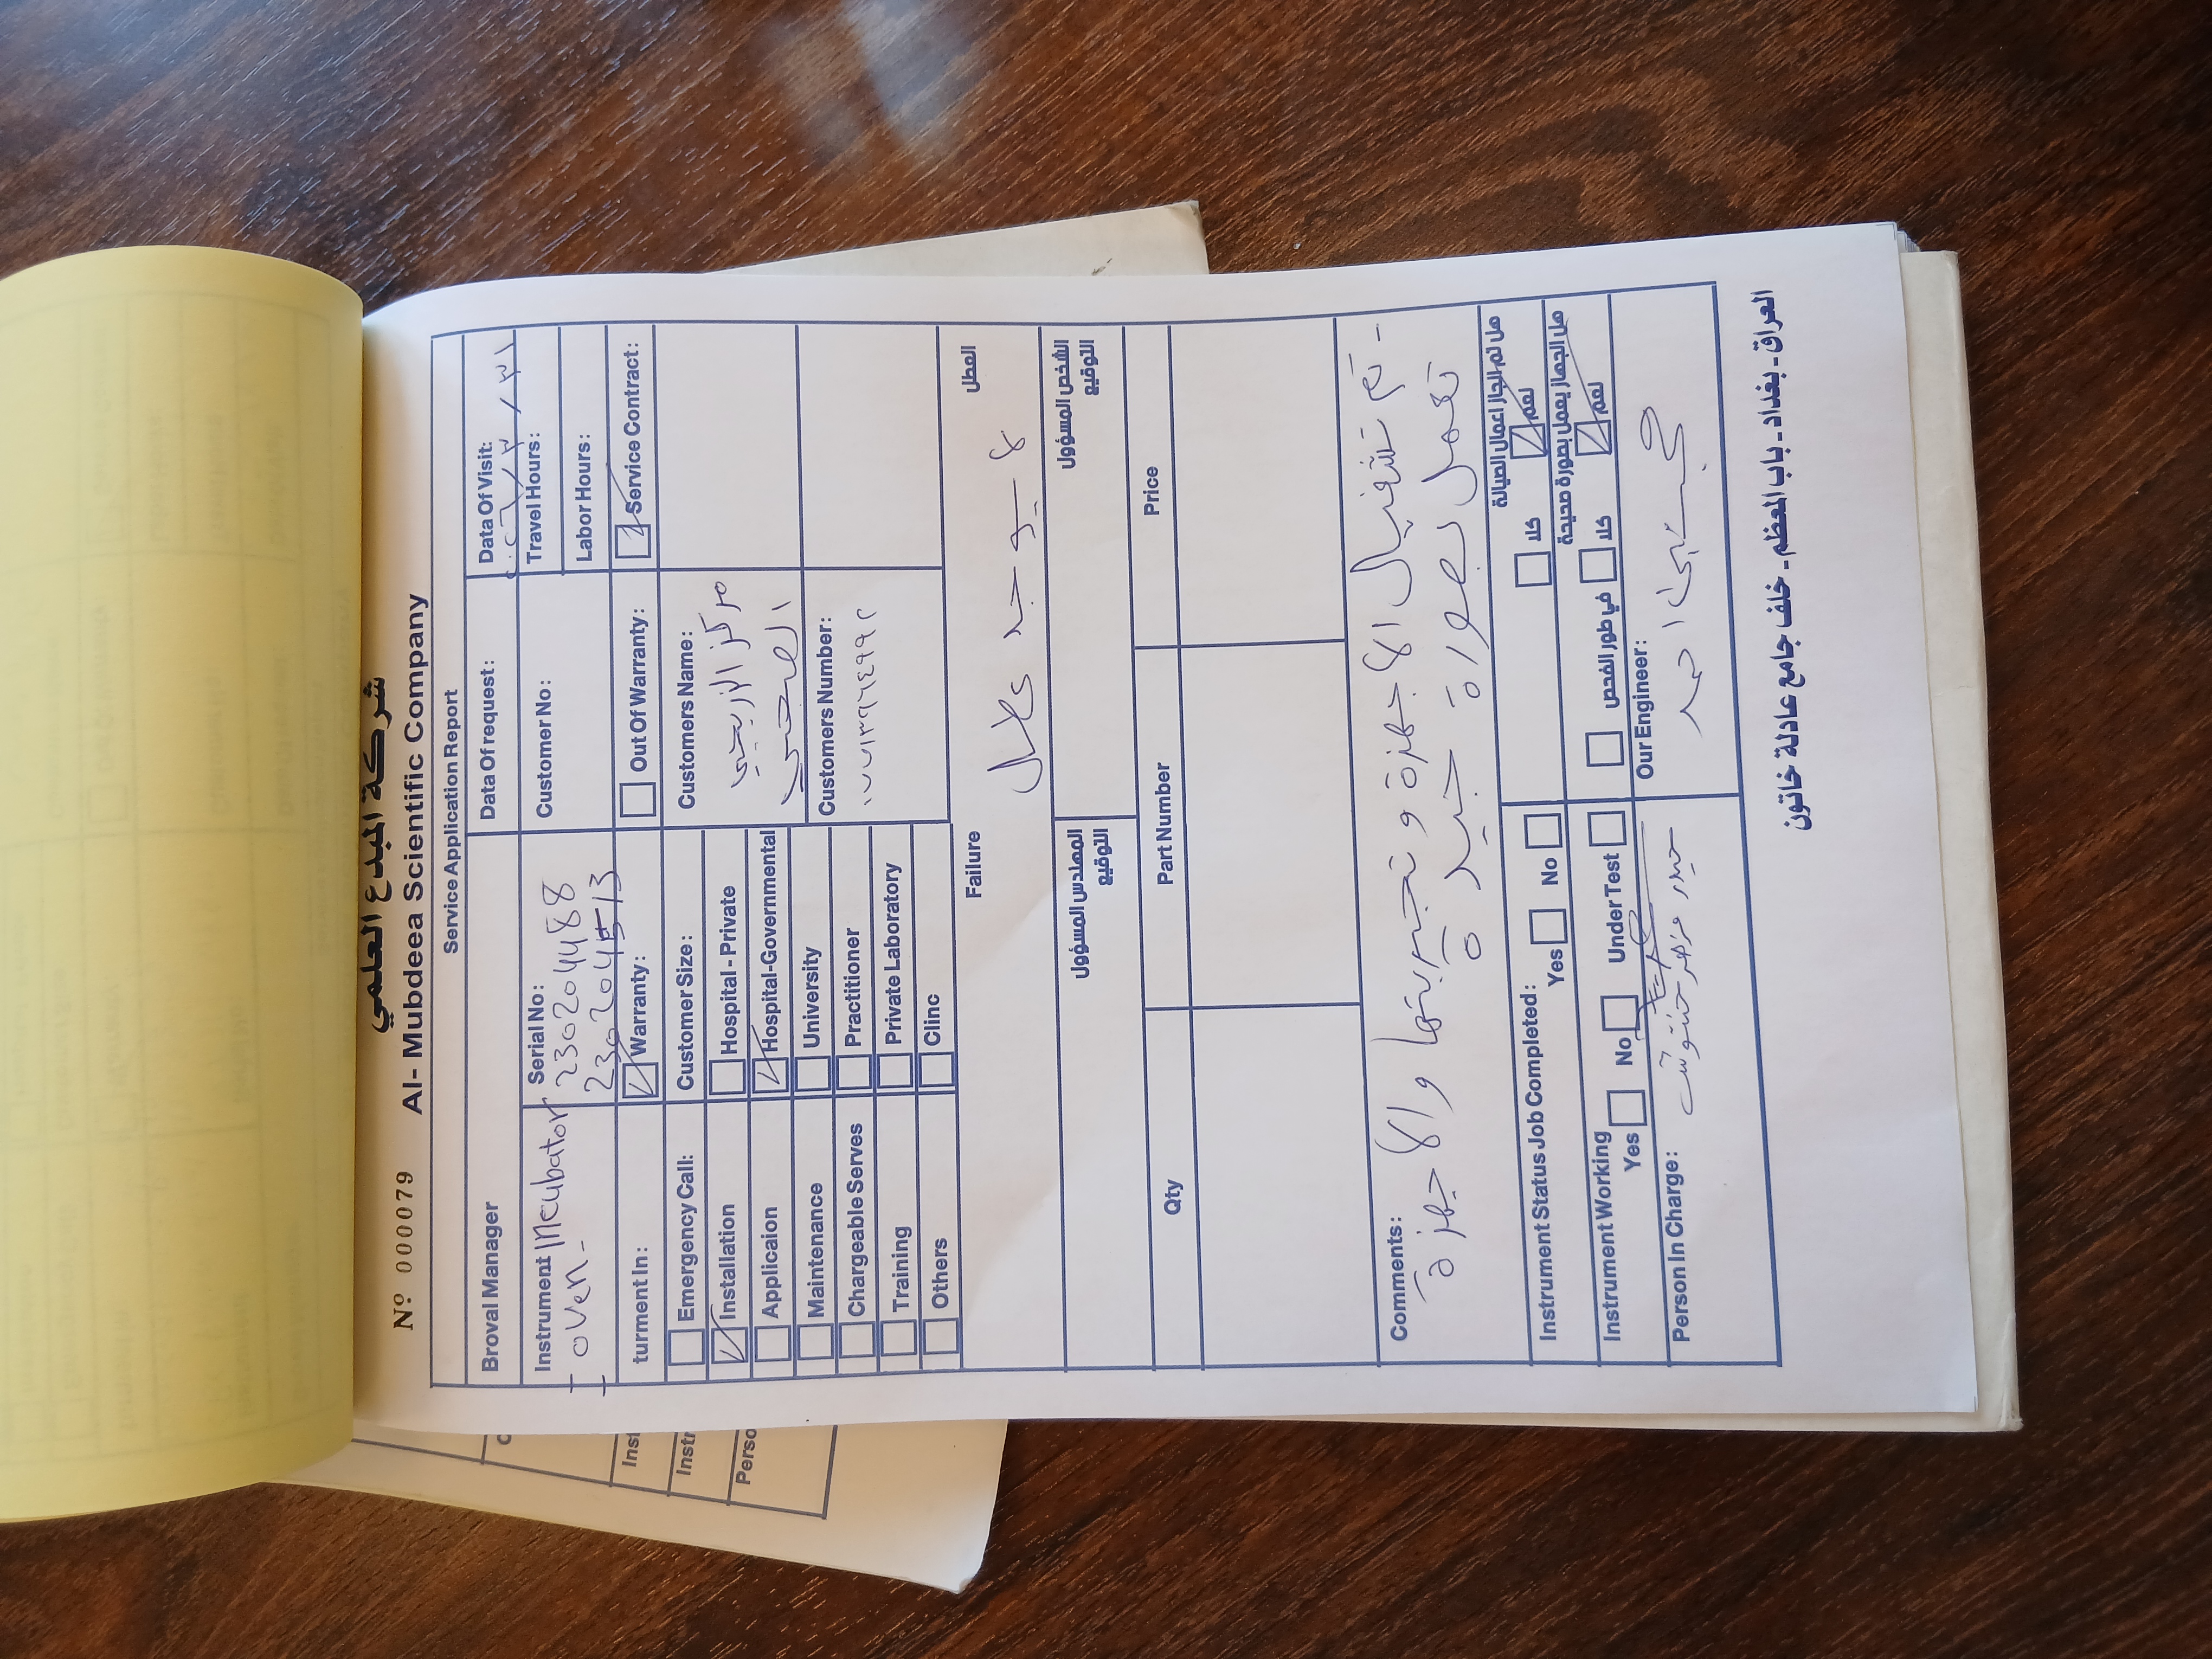 شركة المبدع العلمي
Nº 000079 Al- Mubdeea Scientific Company
Service Application Report
Broval Manager
Data Of request:
Data Of Visit:
Instrument Incubator
- oven -
Serial No:
23020488
Customer No:
Travel Hours:
Labor Hours:
turment In:
Warranty:
Out Of Warranty:
Service Contract:
Emergency Call:
Installation
Applicaion
Maintenance
Chargeable Serves
Training
Others
Customer Size:
Hospital - Private
Hospital-Governmental
University
Practitioner
Private Laboratory
Clinc
Customers Name:
مركز
الصحي
Customers Number:
Failure
العطل
لا يوجد عطل
المهندس المسؤول
التوقيع
الشخص المسؤول
التوقيع
Qty
Part Number
Price
Comments:
- تم تشغيل الاجهزة و تجربتها والاجهزة
تعمل بصورة جيدة
Instrument Status Job Completed:
Yes No
هل تم انجاز اعمال الصيانة
نعم كلا
Instrument Working
Yes No Under Test
هل الجهاز يعمل بصورة صحيحة
نعم كلا في طور الفحص
Person In Charge:
حيدر
Our Engineer:
احمد
العراق - بغداد - باب المعظم - خلف جامع عادلة خاتون
Inst
Instr
Perso